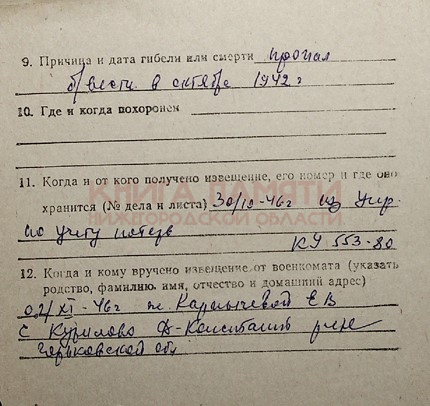 9. Причина и дата гибели или смерти пропал
б/вести в октябре 1942 г
10. Где и когда похоронен
11. Когда и от кого получено извещение, его номер и где оно
хранится (№ дела и листа) 30/IX-46 г из Упр.
по учету потерь
КУ 553-80
КНИГА ПАМЯТИ
НИЖЕГОРОДСКОЙ ОБЛАСТИ
12. Когда и кому вручено извещение от военкомата (указать
родство, фамилию, имя, отчество и домашний адрес)
02/XI-46 г ж. Е В
с Курилово Д-Константин р-не
Горьковской обл